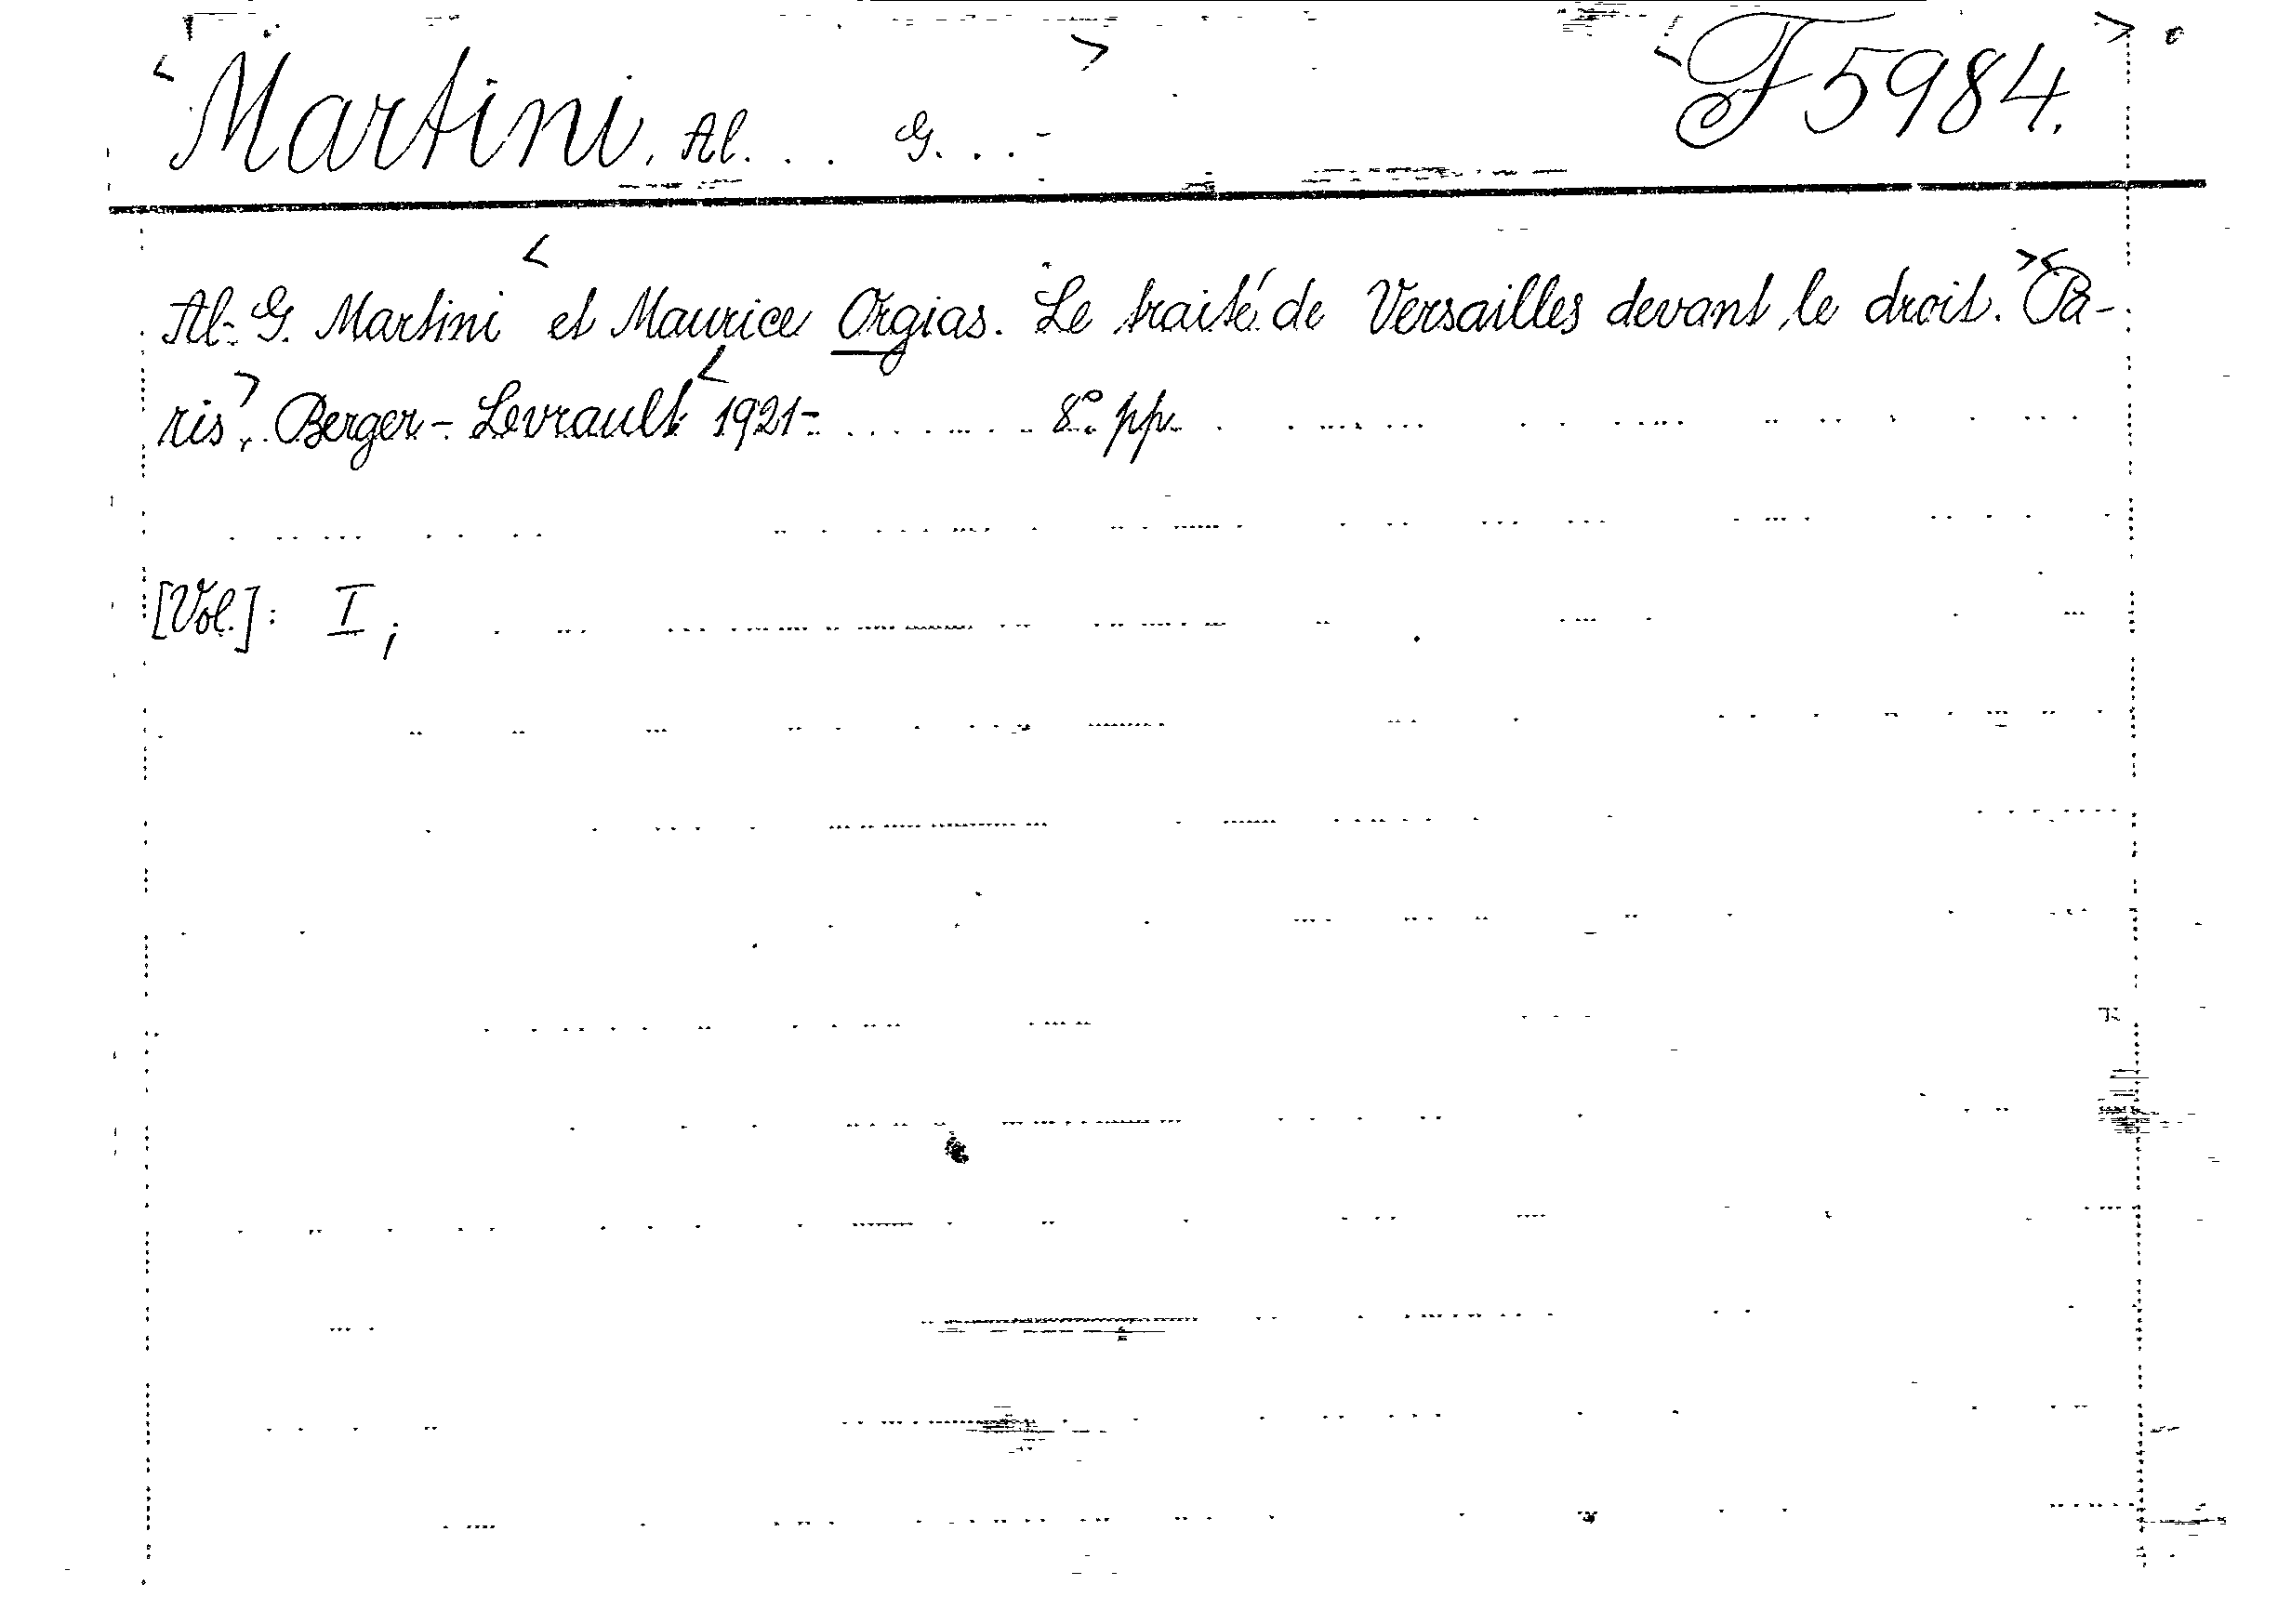 Martini, Al... G...- F5984.
Al-G. Martini et Maurice Orgias. Le traité de Versailles devant le droit. Pa-
ris, Berger-Levrault 1921- 8º pp.
[Vol.]: I;